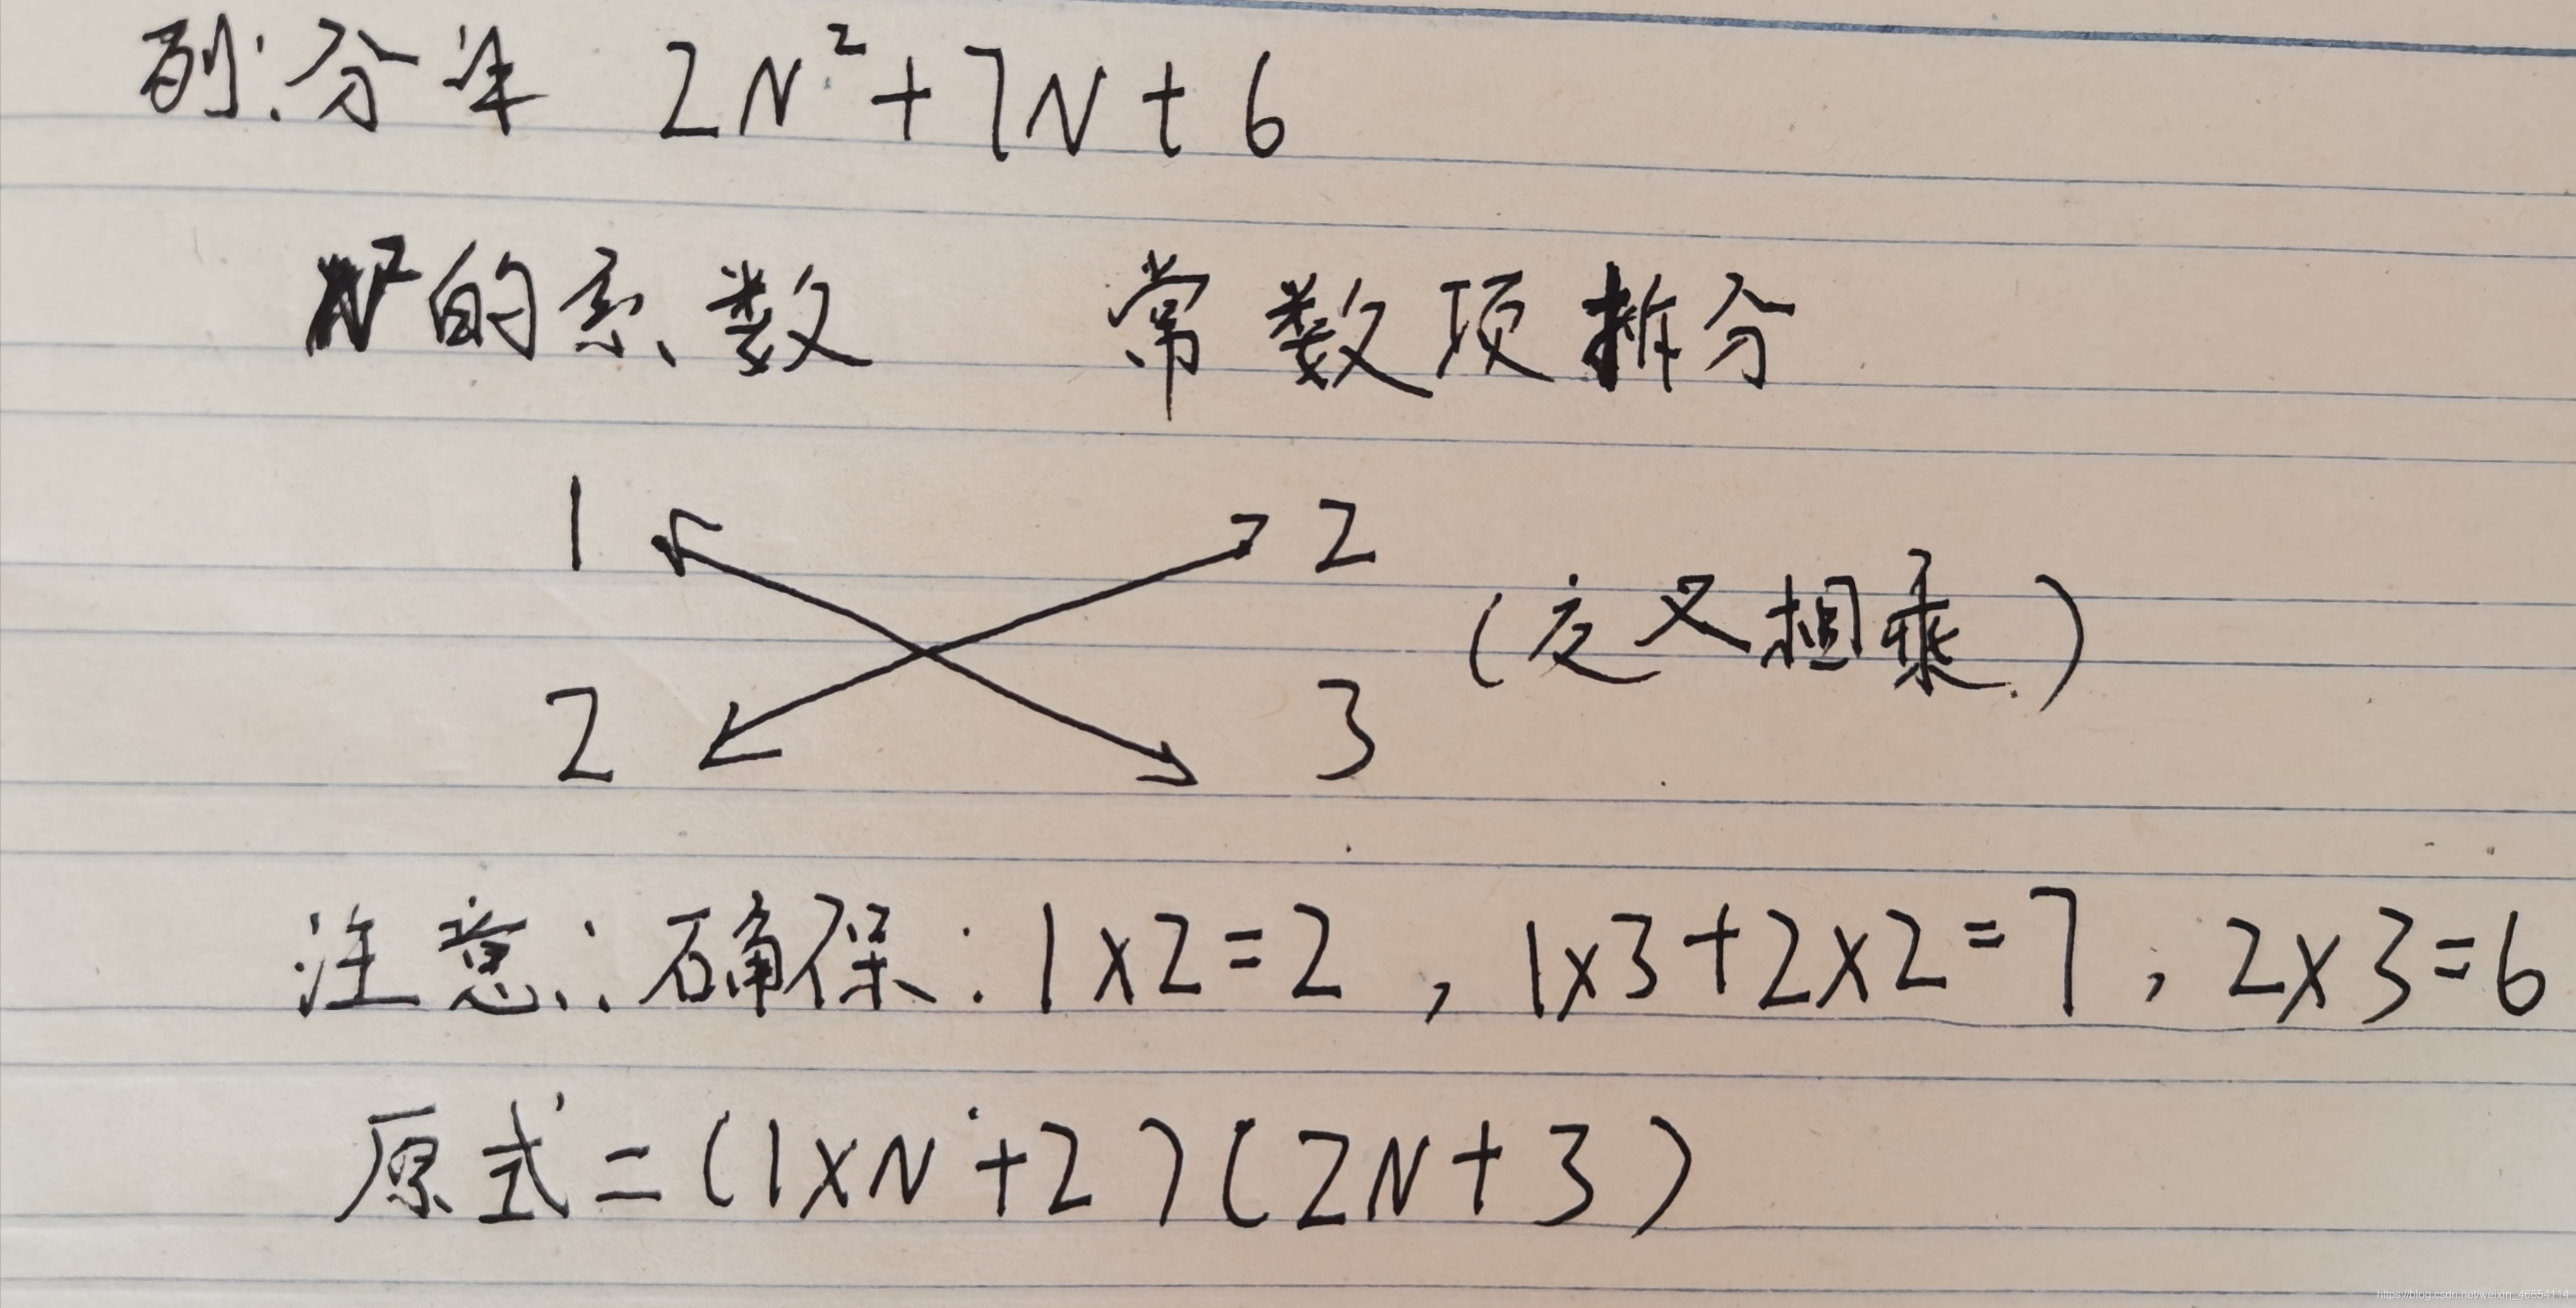 例:分解 2N²+7N+6
N²的系数 常数项拆分
1 2
(交叉相乘.)
2 3
注意:确保:1×2=2,1×3+2×2=7,2×3=6
原式=(1×N+2)(2N+3)
https://blog.csdn.net/weixin_46654114